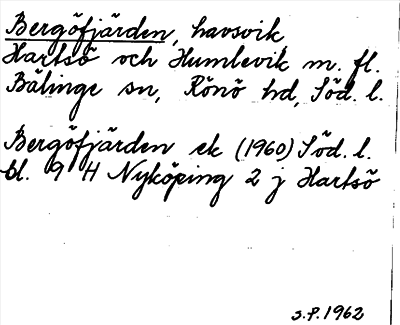 Bergöfjärden, havsvik
Hartsö och Humlevik m. fl.
Bälinge sn, Rönö hd, Söd. l.
Bergöfjärden ek (1960) Söd. l.
bl. 9 H Nyköping 2 j Hartsö
S.P. 1962